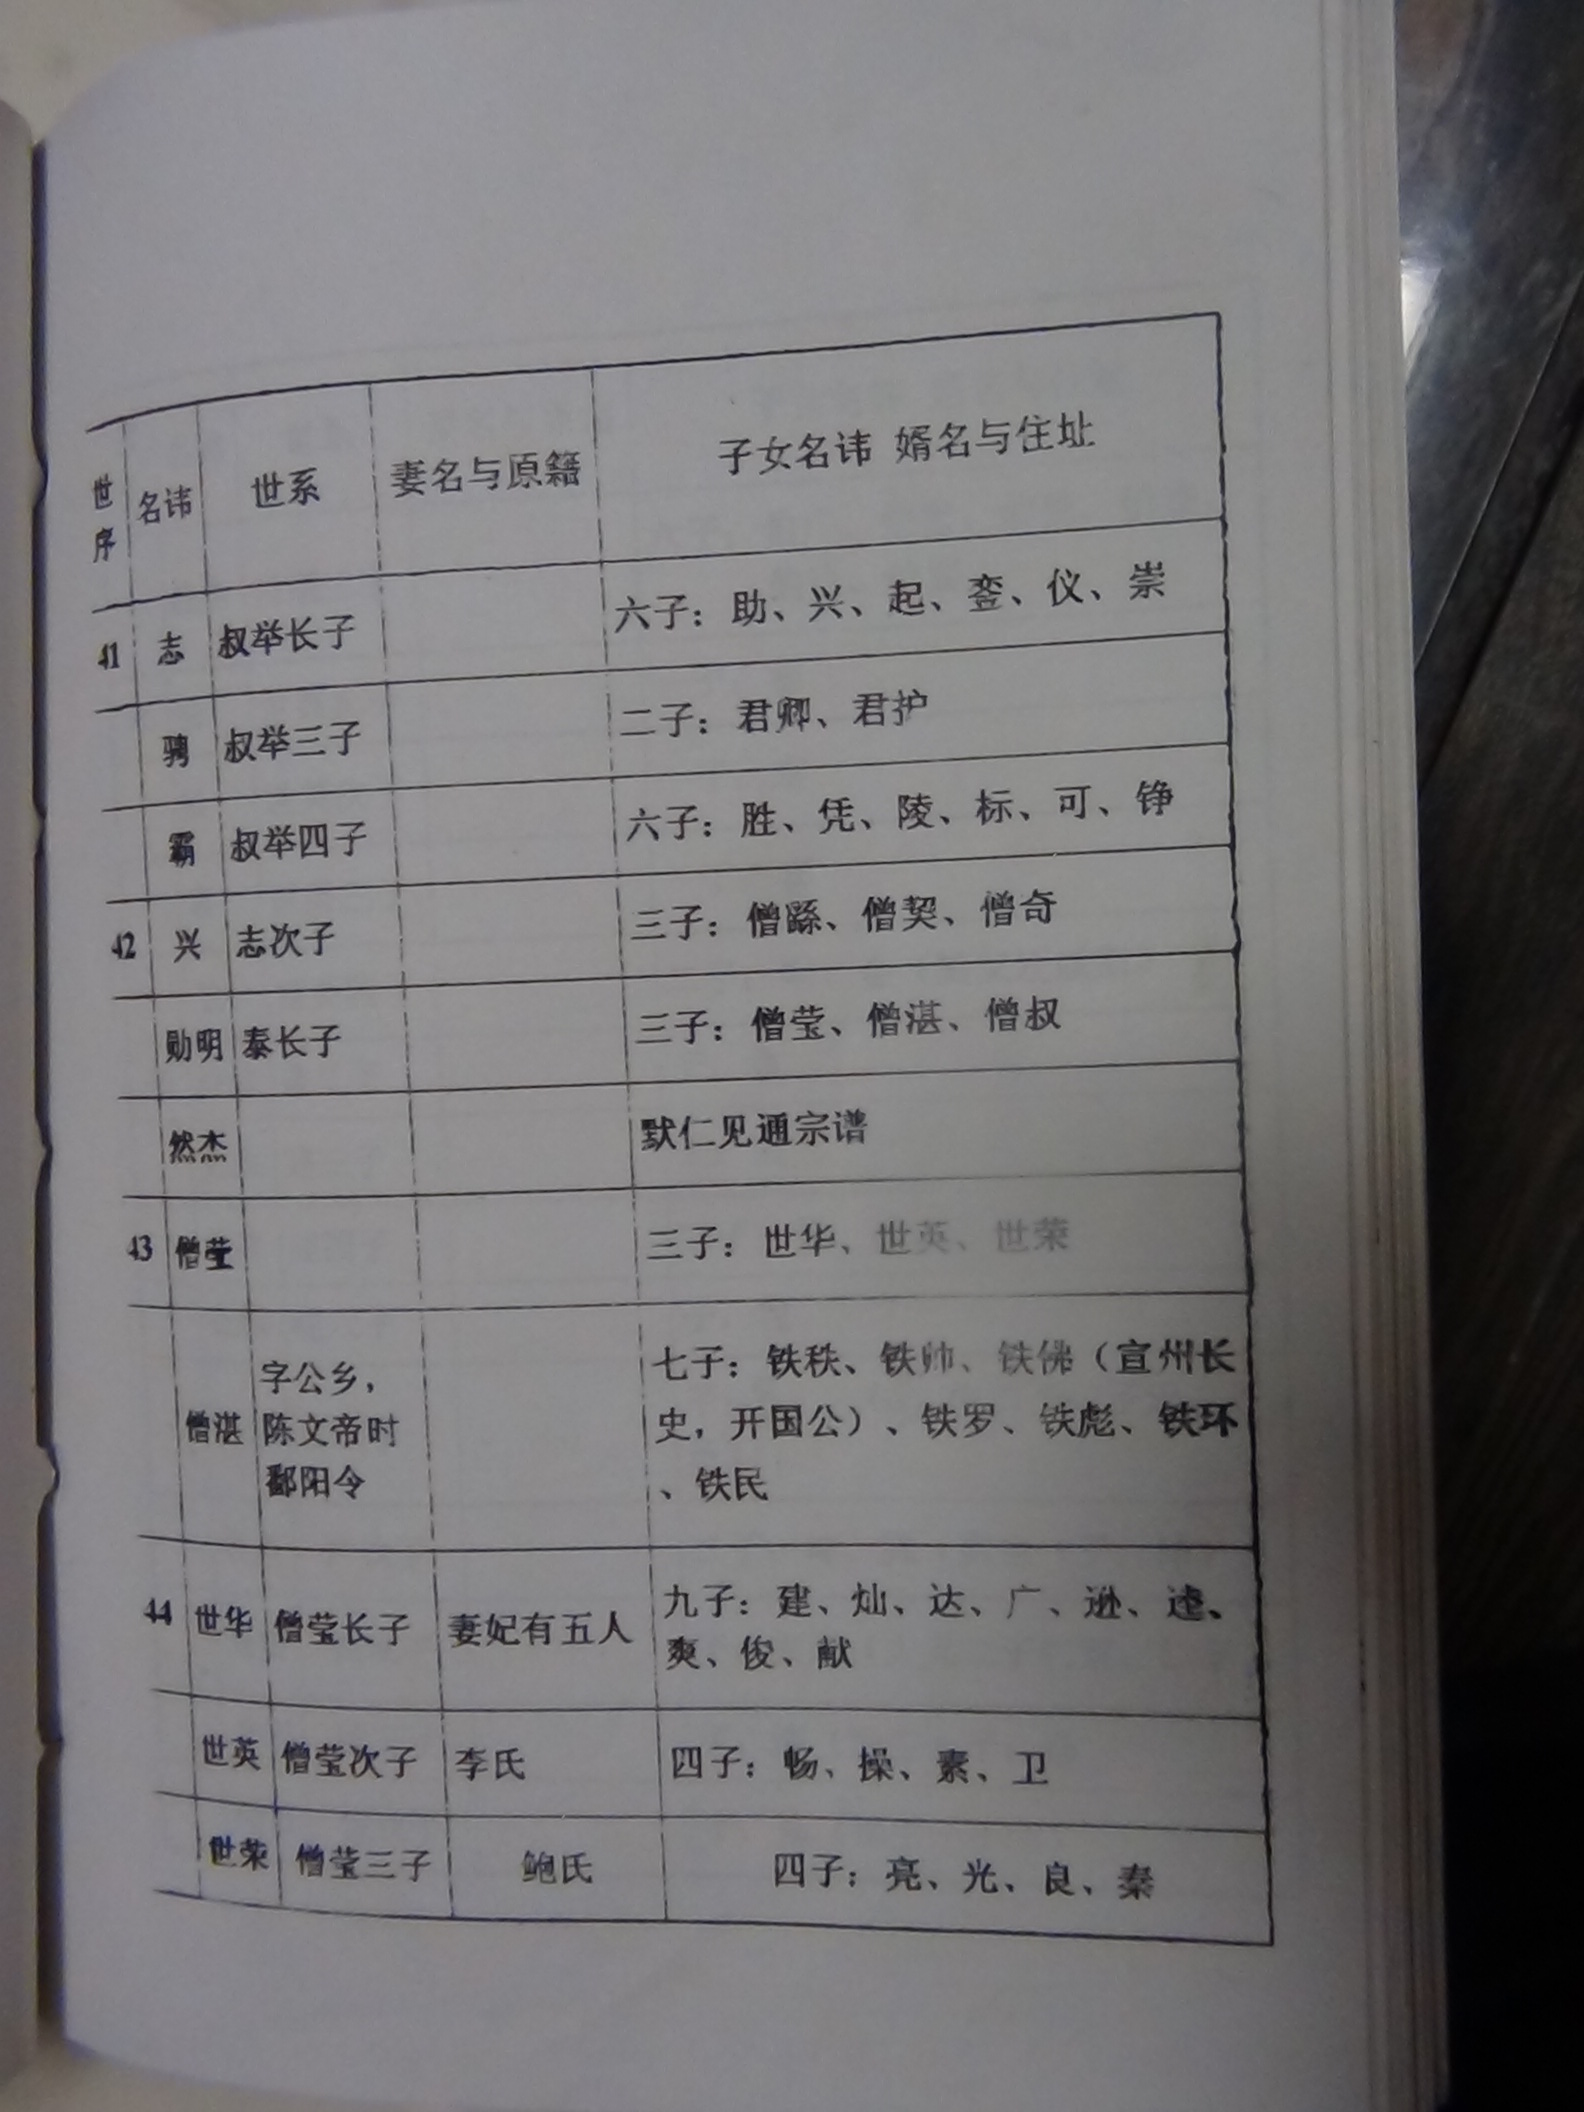 世序 名讳 世系 妻名与原籍 子女名讳 婿名与住址
41 志 叔举长子 六子：助、兴、起、銮、仪、崇
骋 叔举三子 二子：君卿、君护
霸 叔举四子 六子：胜、凭、陵、标、可、铮
42 兴 志次子 三子：僧繇、僧契、僧奇
勋明 泰长子 三子：僧莹、僧湛、僧叔
然杰 默仁见通宗谱
43 僧莹 三子：世华、世英、世荣
僧湛 字公乡，陈文帝时鄱阳令
七子：铁秩、铁帅、铁佛（宣州长
史，开国公）、铁罗、铁彪、铁环
、铁民
44 世华 僧莹长子 妻妃有五人 九子：建、灿、达、广、逊、逵、
爽、俊、献
世英 僧莹次子 李氏 四子：畅、操、素、卫
世荣 僧莹三子 鲍氏 四子：亮、光、良、秦